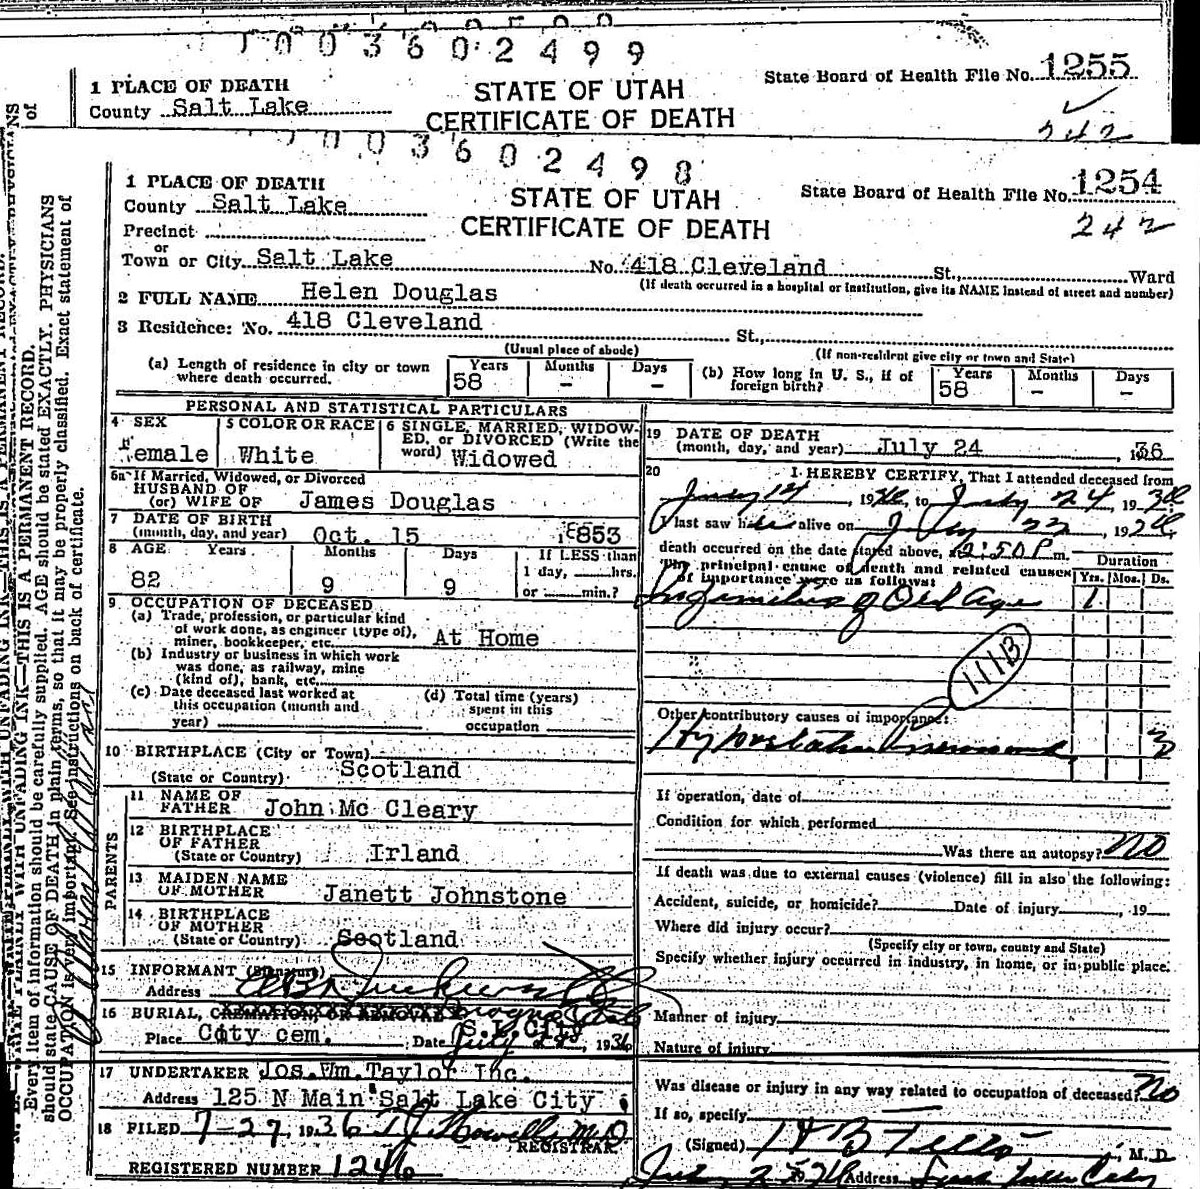 1003602499
1 PLACE OF DEATH
County Salt Lake
STATE OF UTAH
CERTIFICATE OF DEATH
State Board of Health File No. 1255
242
1003602498
1 PLACE OF DEATH
County Salt Lake
STATE OF UTAH
CERTIFICATE OF DEATH
State Board of Health File No. 1254
242
Precinct
or
Town or City Salt Lake No. 418 Cleveland St., Ward
(If death occurred in a hospital or institution, give its NAME instead of street and number)
2 FULL NAME Helen Douglas
3 Residence: No. 418 Cleveland St.,
(Usual place of abode) (If non-resident give city or town and State)
(a) Length of residence in city or town where death occurred. Years 58 Months - Days -
(b) How long in U. S., if of foreign birth? Years 58 Months - Days -
PERSONAL AND STATISTICAL PARTICULARS
4 SEX Female
5 COLOR OR RACE White
6 SINGLE, MARRIED, WIDOWED, or DIVORCED (Write the word) Widowed
6a If Married, Widowed, or Divorced
HUSBAND OF
(or) WIFE OF James Douglas
7 DATE OF BIRTH
(month, day, and year) Oct. 15 1853
8 AGE Years 82 Months 9 Days 9 If LESS than
1 day, hrs.
or min.?
9 OCCUPATION OF DECEASED
(a) Trade, profession, or particular kind
of work done, as engineer (type of),
miner, bookkeeper, etc. At Home
(b) Industry or business in which work
was done, as railway, mine
(kind of), bank, etc.
(c) Date deceased last worked at
this occupation (month and
year)
(d) Total time (years)
spent in this
occupation
10 BIRTHPLACE (City or Town)
(State or Country) Scotland
PARENTS
11 NAME OF
FATHER John Mc Cleary
12 BIRTHPLACE
OF FATHER
(State or Country) Irland
13 MAIDEN NAME
OF MOTHER Janett Johnstone
14 BIRTHPLACE
OF MOTHER
(State or Country) Scotland
15 INFORMANT (Signature)
Address
16 BURIAL, CREMATION, OR REMOVAL S.L.City
Place City cem. Date July 1936
17 UNDERTAKER Jos.Wm.Taylor Inc.
Address 125 N Main Salt Lake City.
18 FILED 7-27, 1936 T J Howells M D
REGISTRAR
REGISTERED NUMBER 1246
19 DATE OF DEATH
(month, day, and year) July 24, 1936
20 I HEREBY CERTIFY, That I attended deceased from
July 14 1936, to July 24, 1936
I last saw her alive on July 23, 1936,
death occurred on the date stated above, at 2:50 P. m.
The principal cause of death and related causes
of importance were as follows: Duration
Yrs. Mos. Ds.
Infirmities of Old Age 1
111B
Other contributory causes of importance:
Hypostatic Pneumonia
If operation, date of
Condition for which performed
Was there an autopsy? No
If death was due to external causes (violence) fill in also the following:
Accident, suicide, or homicide? Date of injury , 19
Where did injury occur?
(Specify city or town, county and State)
Specify whether injury occurred in industry, in home, or in public place.
Manner of injury
Nature of injury
Was disease or injury in any way related to occupation of deceased? No
If so, specify
(Signed) , M. D
Address Salt Lake City
Every item of information should be carefully supplied. AGE should be stated EXACTLY. PHYSICIANS
should state CAUSE OF DEATH in plain terms, so that it may be properly classified. Exact statement of
OCCUPATION is very important. See instructions on back of certificate.